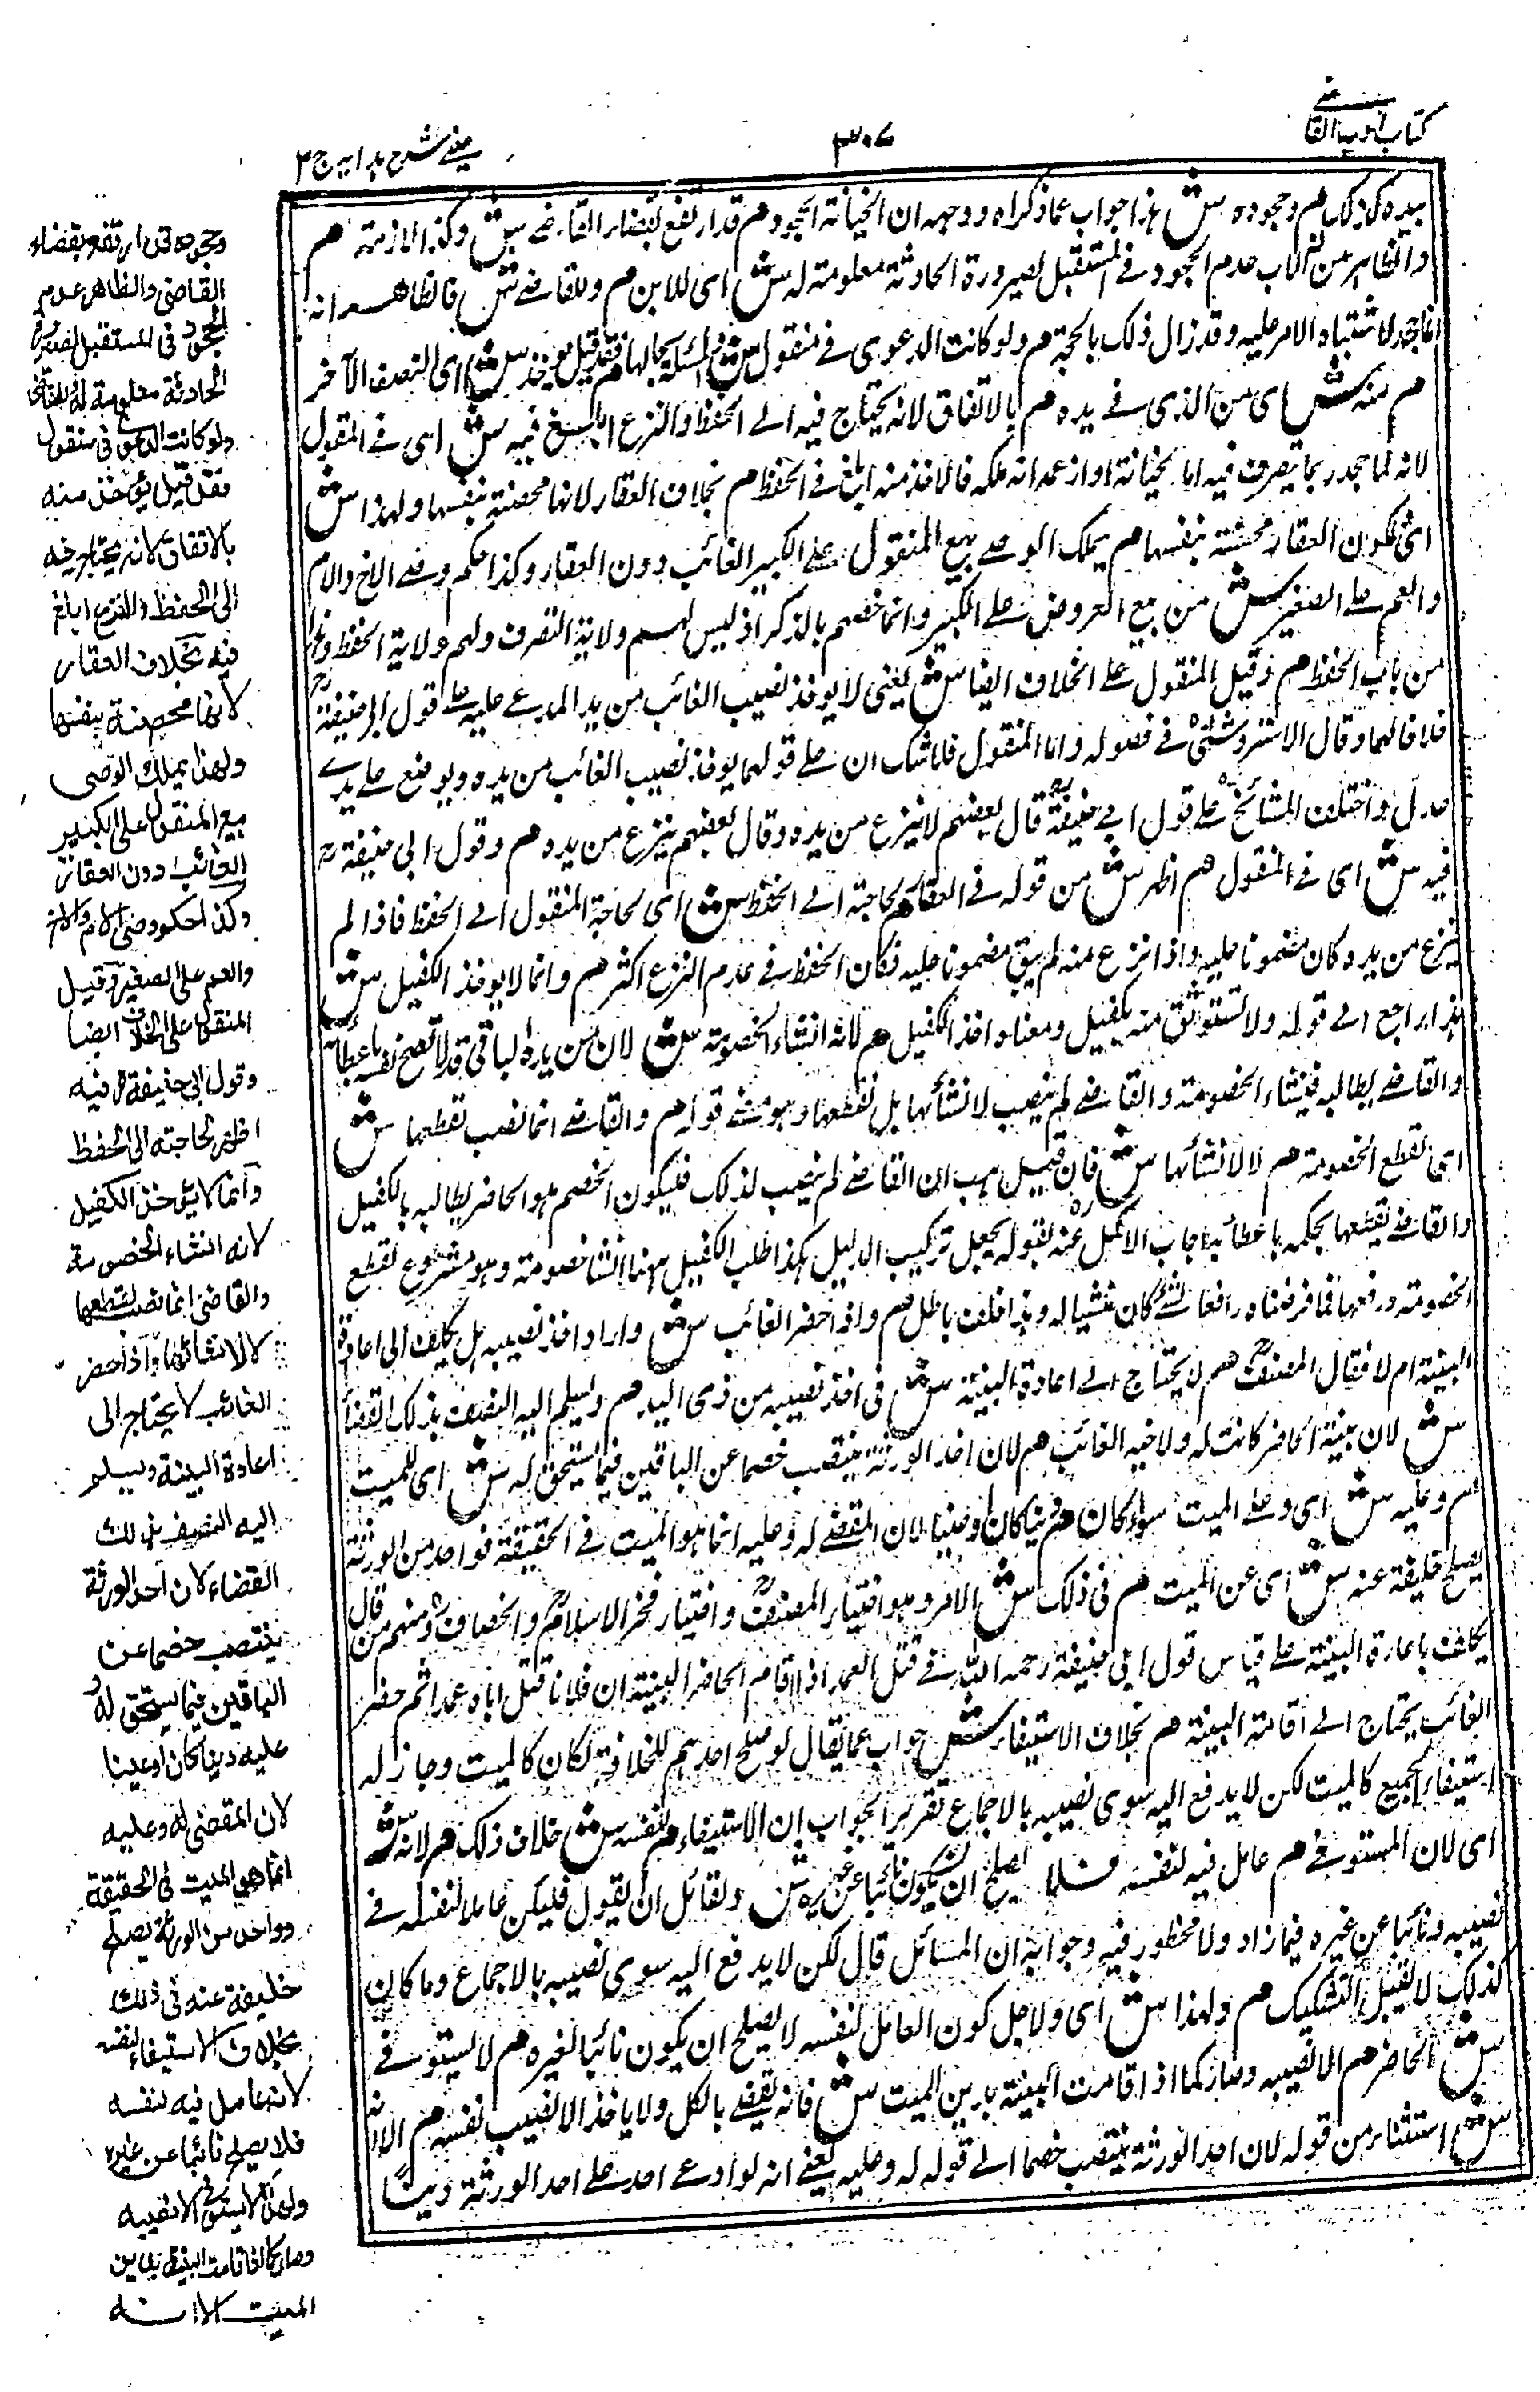 كتاب ادب القاضي
٣٠٧
عيني شرح هدايه ج ٣
بيده كذلك م وجحوده ش هذا جواب عما ذكراه ووجهه ان الخيانة الجحود م قد ارتفع بقضاء القاضي ش وكذا لازمته م
والظاهر من لزم الاب عدم الجحود في المستقبل لصيرورة الحادثة معلومة له ش اي للابن م وللقاضي ش فالظاهر انه
انما جحد لاشتباه الامر عليه وقد زال ذلك بالحجة م ولو كانت الدعوى في منقول ش والمسألة بحالها م فقد قيل يؤخذ ش اي النصف الآخر
م منه ش اي من الذي في يده م بالاتفاق لانه يحتاج فيه الى الحفظ والنزع ابلغ فيه ش اي في المنقول
لانه لما جحد ربما يتصرف فيه اما بخيانة او لزعمه انه ملكه فالاخذ منه ابلغ في الحفظ م بخلاف العقار لانها محصنة بنفسها ولهذا ش
اي لكون العقار محصنة بنفسها م يملك الوصي بيع المنقول على الكبير الغائب دون العقار وكذا حكم وصي الاخ والام
والعم على الصغير ش من بيع العروض على الكبير وانما خصهم بالذكر اذ ليس لهم ولاية التصرف ولهم ولاية الحفظ وهذا
من باب الحفظ م وقيل المنقول على الخلاف ايضا ش يعني لا يوخذ نصيب الغائب من يد المدعى عليه على قول ابي حنيفة رح
خلافا لهما وقال الاستروشني في فصوله واما المنقول فلا شك ان على قولهما يوخذ نصيب الغائب من يده ويوضع على يدي
عدل واختلف المشائخ على قول ابي حنيفة قال بعضهم لا ينزع من يده وقال بعضهم ينزع من يده م وقول ابي حنيفة رح
فيه ش اي في المنقول م اظهر ش من قوله في العقار م لحاجته الى الحفظ ش اي لحاجة المنقول الى الحفظ فاذا لم
ينزع من يده كان مضمونا عليه واذا نزع منه لم يبق مضمونا عليه فكان الحفظ في عدم النزع اكثر م وانما لا يوخذ الكفيل ش
هذا راجع الى قوله ولا يستوثق منه بكفيل ومعناه اخذ الكفيل م لانه انشاء الخصومة ش لان من بيده الباقي قد لا تسمح نفسه باعطائه
والقاضي يطالبه فينشاء الخصومة والقاضي لم ينصب لانشائها بل لقطعها وهو معنى قوله م والقاضي انما نصب لقطعها ش
اي لقطع الخصومة م لا لانشائها ش فان قيل هب ان القاضي لم ينصب لذلك فليكون الخصم هو الحاضر يطالبه بالكفيل
والقاضي يقطعها بحكمه باعطائه اجاب الاكمل عنه بقوله يجعل تركيب الدليل هكذا طلب الكفيل ههنا انشا خصومة وهو مشروع لقطع
الخصومة ورفعها فما فرضناه رافعا لشئ كان منشيا له وهذا خلف باطل م واذا حضر الغائب ش واراد اخذ نصيبه هل يكلف الى اعادة
البينة ام لا فقال المصنف م لا يحتاج الى اعادة البينة ش في اخذ نصيبه من ذي اليد م ويسلم اليه النصف بذلك القضأ
ش لان بينة الحاضر كانت له ولاخيه الغائب م لان احد الورثة ينتصب خصما عن الباقين فيما يستحق له ش اي للميت
م وعليه ش اي وعلى الميت سواء كان م دينا كان او عينا لان المقضي له وعليه انما هو الميت في الحقيقة فواحد من الورثة
يصلح خليفة عنه ش اي عن الميت م في ذلك ش الامر وهو اختيار المصنف واختيار فخر الاسلام والخصاف ومنهم من قال
يكلف باعادة البينة على قياس قول ابي حنيفة رحمه الله في قتل العمد اذا اقام الحاضر البينة ان فلانا قتل اباه عمدا ثم حضر
الغائب يحتاج الى اقامة البينة م بخلاف الاستيفاء ش جواب عما يقال لو صلح احدهم للخلافة لكان كالميت وجاز له
استيفاء الجميع كالميت لكن لا يدفع اليه سوى نصيبه بالاجماع تقرير الجواب ان الاستيفاء م لنفسه ش خلاف ذلك م لانه ش
اي لان المستوفي م عامل فيه لنفسه فلا يصلح ان يكون نائبا عن غيره ش ولقائل ان يقول فليكن عاملا لنفسه في
نصيبه ونائبا عن غيره فيما زاد ولا محظور فيه وجوابه ان المسائل قال لكن لا يدفع اليه سوى نصيبه بالاجماع وما كان
كذلك لا يقبل التشكيك م ولهذا ش اي ولاجل كون العامل لنفسه لا يصلح ان يكون نائبا لغيره م لا يستوفي
ش الحاضر م الا نصيبه وصار كما اذا قامت البينة بدين الميت ش فانه يقضى بالكل ولا ياخذ الا نصيب نفسه م الا انه
ش استثناء من قوله لان احد الورثة ينتصب خصما الى قوله له وعليه يعني انه لو ادعى احد على احد الورثة دينا
وجحوده قد ارتفع بقضاء
القاضي والظاهر عدم
الجحود في المستقبل لصيرورة
الحادثة معلومة له وللقاضي
ولو كانت الدعوى في منقول
فقد قيل يؤخذ منه
بالاتفاق لانه يحتاج فيه
الى الحفظ والنزع ابلغ
فيه بخلاف العقار
لانها محصنة بنفسها
ولهذا يملك الوصي
بيع المنقول على الكبير
الغائب دون العقار
وكذا حكم وصي الام والاخ
والعم على الصغير وقيل
المنقول على الخلاف ايضا
وقول ابي حنيفة رح فيه
اظهر لحاجته الى الحفظ
وانما لا يؤخذ الكفيل
لانه انشاء الخصومة
والقاضي انما نصب لقطعها
لا لانشائها واذا حضر
الغائب لا يحتاج الى
اعادة البينة ويسلم
اليه النصف بذلك
القضاء لان احد الورثة
ينتصب خصما عن
الباقين فيما يستحق له و
عليه دينا كان او عينا
لان المقضي له وعليه
انما هو الميت في الحقيقة
وواحد من الورثة يصلح
خليفة عنه في ذلك
بخلاف الاستيفاء لنفسه
لانه عامل فيه لنفسه
فلا يصلح نائبا عن غيره
ولهذا لا يستوفي الا نصيبه
وصار كما اذا قامت البينة بدين
الميت الا انه